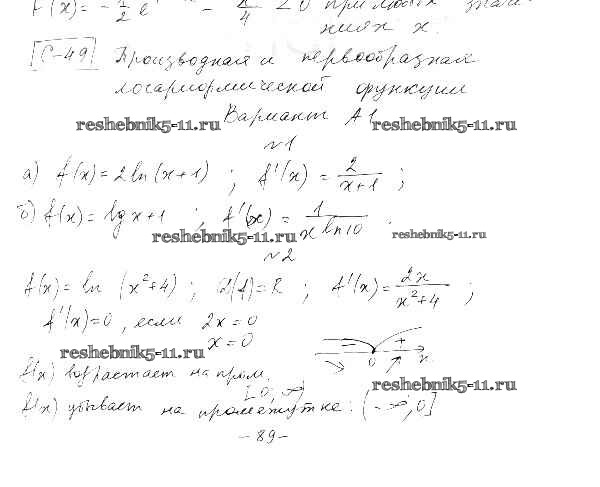 f'(x) = - 1/2 e - 1/4 < 0 при любых значе-
ниях x.
С-49 Производная и первообразная
логарифмической функции
Вариант А1
reshebnik5-11.ru reshebnik5-11.ru
№1
а) f(x) = 2 ln (x+1) ; f'(x) = 2/(x+1) ;
б) f(x) = lg x+1 ; f'(x) = 1/(x ln 10) .
reshebnik5-11.ru reshebnik5-11.ru
№2
f(x) = ln (x²+4) ; D(f) = R ; f'(x) = 2x/(x²+4) ;
f'(x) = 0, если 2x = 0
x = 0
− + 0 x
reshebnik5-11.ru
f(x) возрастает на пром.
[0, ∞)
reshebnik5-11.ru
f(x) убывает на промежутке: (-∞, 0]
-89-